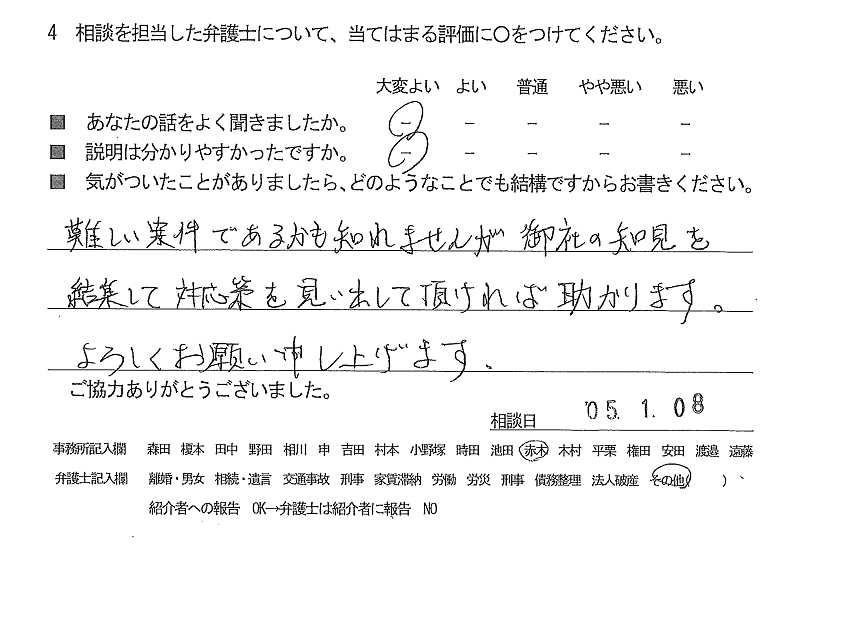 4 相談を担当した弁護士について、当てはまる評価に〇をつけてください。
大変よい よい 普通 やや悪い 悪い
■ あなたの話をよく聞きましたか。 － － － － －
■ 説明は分かりやすかったですか。 － － － － －
■ 気がついたことがありましたら、どのようなことでも結構ですからお書きください。
難しい案件であるかも知れませんが 御社の知見を
結集して対応策を見い出して頂ければ助かります。
よろしくお願い申し上げます。
ご協力ありがとうございました。
相談日 '05. 1. 08
事務所記入欄 森田 榎本 田中 野田 相川 申 吉田 村本 小野塚 時田 池田 赤木 木村 平栗 権田 安田 渡邉 遠藤
弁護士記入欄 離婚・男女 相続・遺言 交通事故 刑事 家賃滞納 労働 労災 刑事 債務整理 法人破産 その他( )
紹介者への報告 OK→弁護士は紹介者に報告 NO